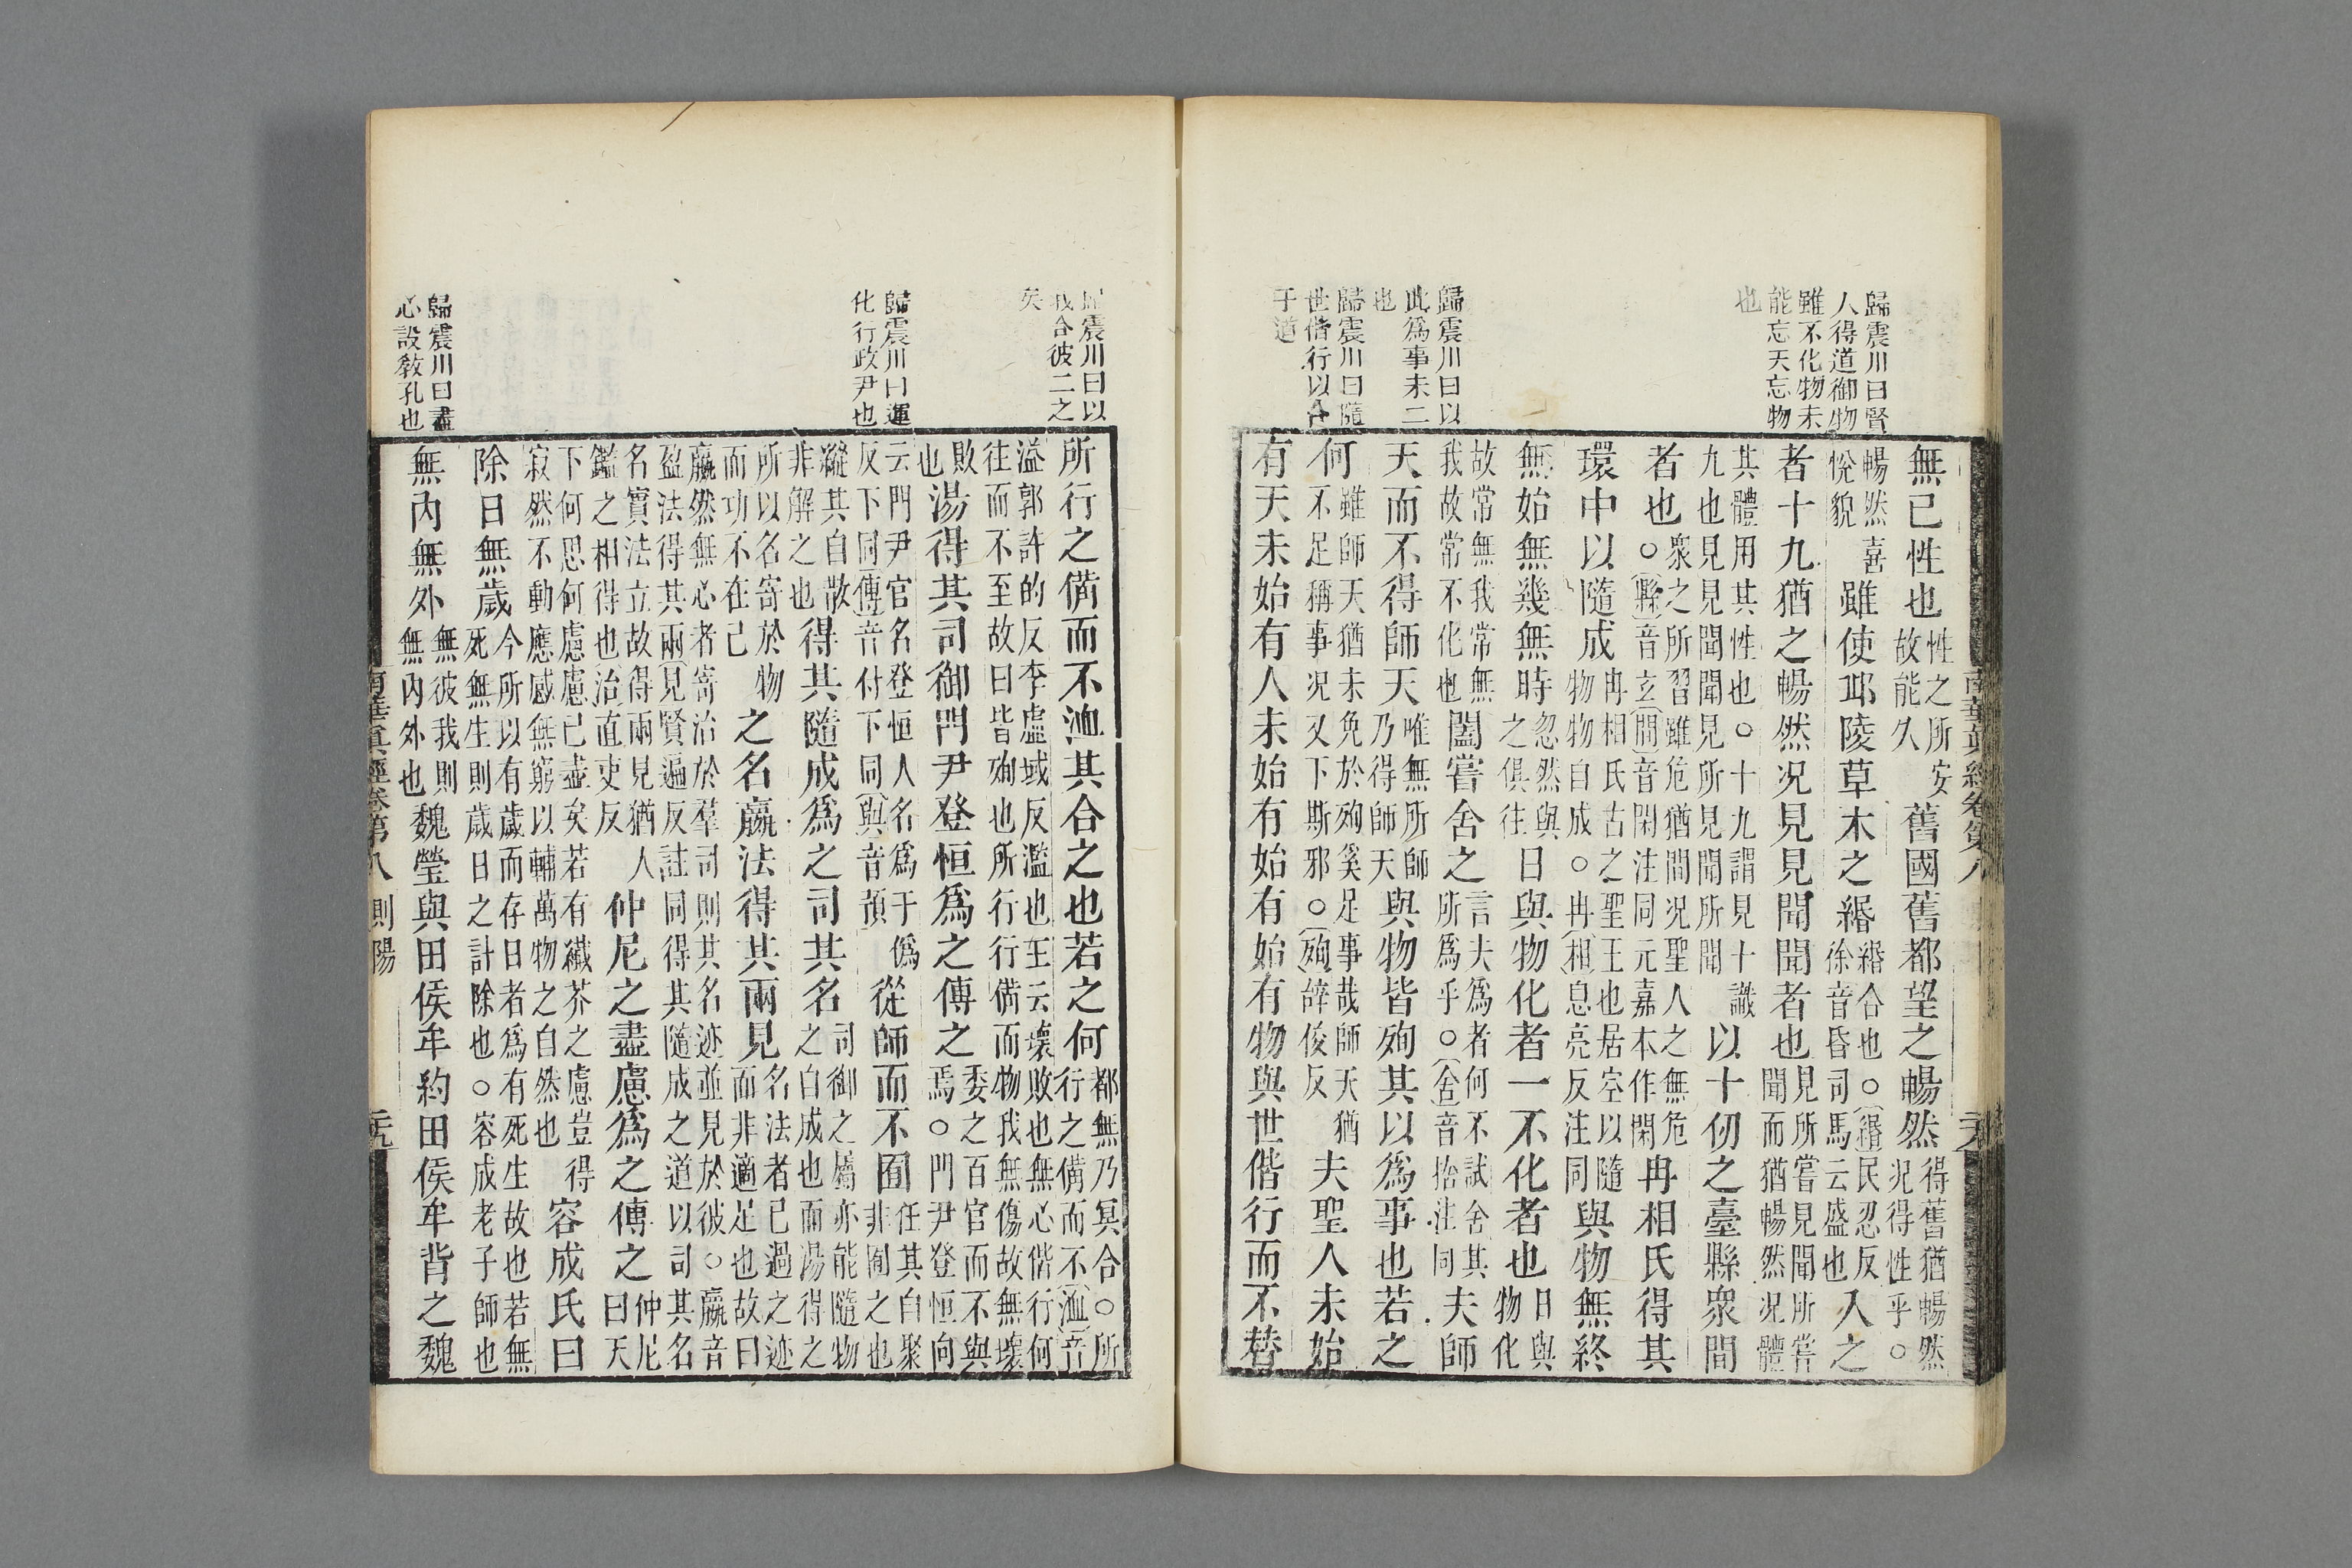 歸震川曰賢
人得道御物
雖不化物未
能忘天忘物
也
歸震川曰以
此爲事未二
也
歸震川曰隨
世偕行以合
于道
南華真經卷第八
無已性也性之所安故能久舊國舊都望之暢然得舊猶暢然况得性乎○
暢然喜悅貌雖使丘陵草木之緡緡合也○緡民忍反徐音昏司馬云盛也入之
者十九猶之暢然况見見聞聞者也見所嘗見聞所嘗聞而猶暢然况體
其體用其性也○十九謂見十識九也見見聞聞見所見聞所聞以十仞之臺縣衆間
者也衆之所習雖危猶間况聖人之無危○縣音玄間音閑注同元嘉本作閑冉相氏得其
環中以隨成冉相氏古之聖王也居空以隨物物自成○冉相息亮反注同與物無終
無始無幾無時忽然與之俱往日與物化者一不化者也日與物化
故常無我常無我故常不化也闔嘗舍之言夫爲者何不試舍其所爲乎○舍音捨注同夫師
天而不得師天唯無所師乃得師天與物皆殉其以爲事也若之
何雖師天猶未免於殉奚足事哉師天猶不足稱事况又下斯邪○殉辭俊反夫聖人未始
有天未始有人未始有始有始有物與世偕行而不替
歸震川曰以
我合彼二之
矣
歸震川曰運
化行政尹也
歸震川曰盡
心設教孔也
所行之備而不洫其合之也若之何都無乃冥合○所行之備而不洫音
溢郭許的反李虛域反濫也王云壞敗也無心偕行何往而不至故曰皆殉也所行行備而物我無傷故無壞
敗也湯得其司御門尹登恒爲之傅之委之百官而不與焉○門尹登恒向
云門尹官名登恒人名爲于僞反下同傅音付下同與音預從師而不囿任其自聚非囿之也
縱其自散非解之也得其隨成爲之司其名司御之屬亦能隨物之自成也而湯得之
所以名寄於物而功不在己之名嬴法得其兩見名法者已過之迹而非適足也故曰
嬴然無心者寄治於羣司則其名迹並見於彼○嬴音盈法得其兩見賢遍反註同得其隨成之道以司其名
名實法立故得兩見猶人鑑之相得也治直吏反仲尼之盡慮爲之傅之仲尼曰天
下何思何慮慮已盡矣若有纖芥之慮豈得寂然不動應感無窮以輔萬物之自然也容成氏曰
除日無歲今所以有歲而存日者爲有死生故也若無死無生則歲日之計除也○容成老子師也
無內無外無彼我則無內外也魏瑩與田侯牟約田侯牟背之魏
南華真經卷第八 則陽